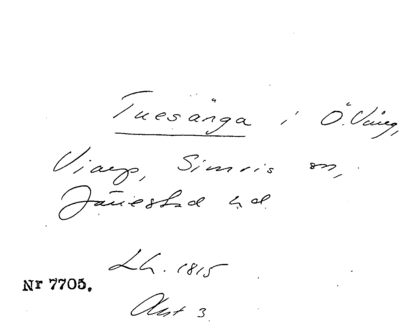 Tuesänga i Ö. Väng,
Viarp, Simris sn,
Järrestad hd
Lh. 1815
Nr 7705.
Akt 3